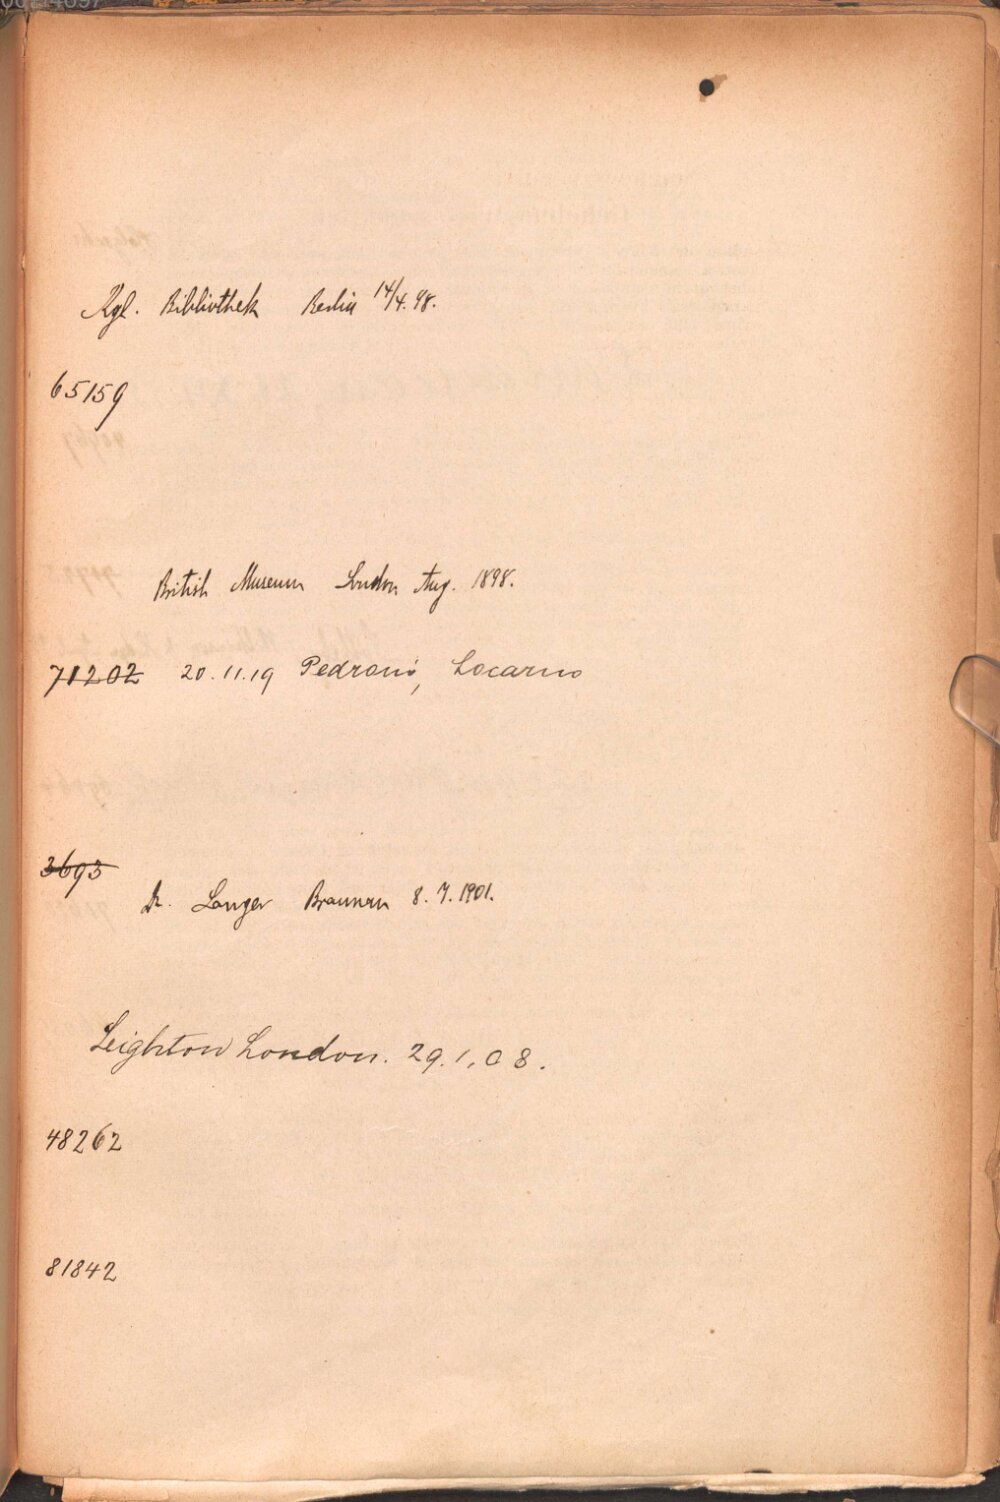 Kgl. Bibliothek Berlin 14/4. 98.
65159
British Museum London Aug. 1898.
71202 20.11.19 Pedroni, Locarno
3693
Dr. Langer Braunau 8. 7. 1901.
Leighton London. 29.1.08.
48262
81842